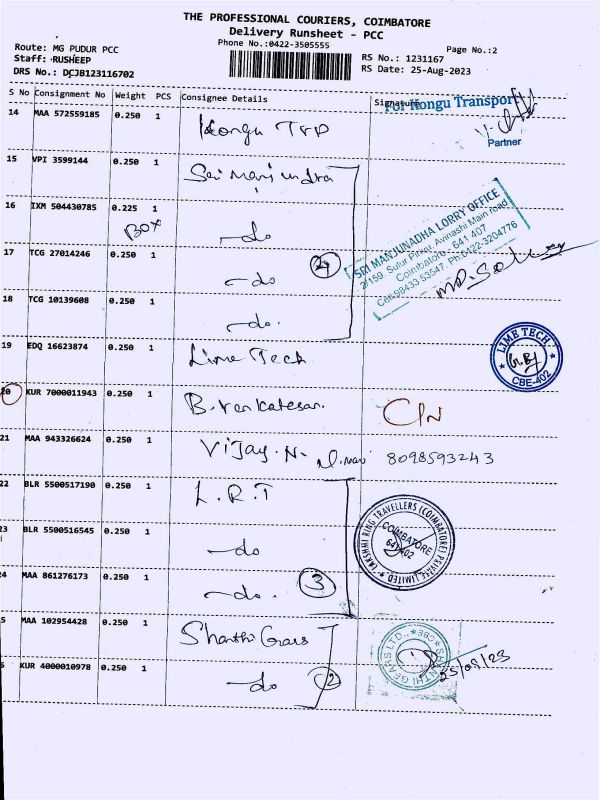 THE PROFESSIONAL COURIERS, COIMBATORE
Delivery Runsheet - PCC
Phone No.:0422-3505555
Page No.:2
Route: MG PUDUR PCC
Staff: RUSHEEP
DRS No.: DCJB123116702
RS No.: 1231167
RS Date: 25-Aug-2023
S No Consignment No Weight PCS Consignee Details Signature
For Kongu Transport
Partner
14 MAA 572559185 0.250 1 Kongu TRP
15 VPI 3599144 0.250 1 Sai Manjundra
16 IXM 504430785 0.225 1 do
BOX
17 TCG 27014246 0.250 1 do
4
SRI MANJUNADHA LORRY OFFICE
2/159, Sulur Pirivu, Avinashi Main road
Coimbatore - 641 407
Cell:98433 53547 Ph:0422-3204776
18 TCG 10139608 0.250 1 do.
19 EDQ 16623874 0.250 1 Lime Tech
LIME TECH
CBE-402
20 KUR 7000011943 0.250 1 B.Venkatesan.
21 MAA 943326624 0.250 1 Vijay.N. 8098593243
22 BLR 5500517190 0.250 1 L.R.T
23 BLR 5500516545 0.250 1 do
LAKSHHI RING TRAVELLERS (COIMBATORE) PRIVATE LIMITED
COIMBATORE
641402
24 MAA 861276173 0.250 1 do.
3
5 MAA 102954428 0.250 1 Shanthi Gears
SHANTHI GEARS LTD., CBE
25/08/23
6 KUR 4000010978 0.250 1 do
2